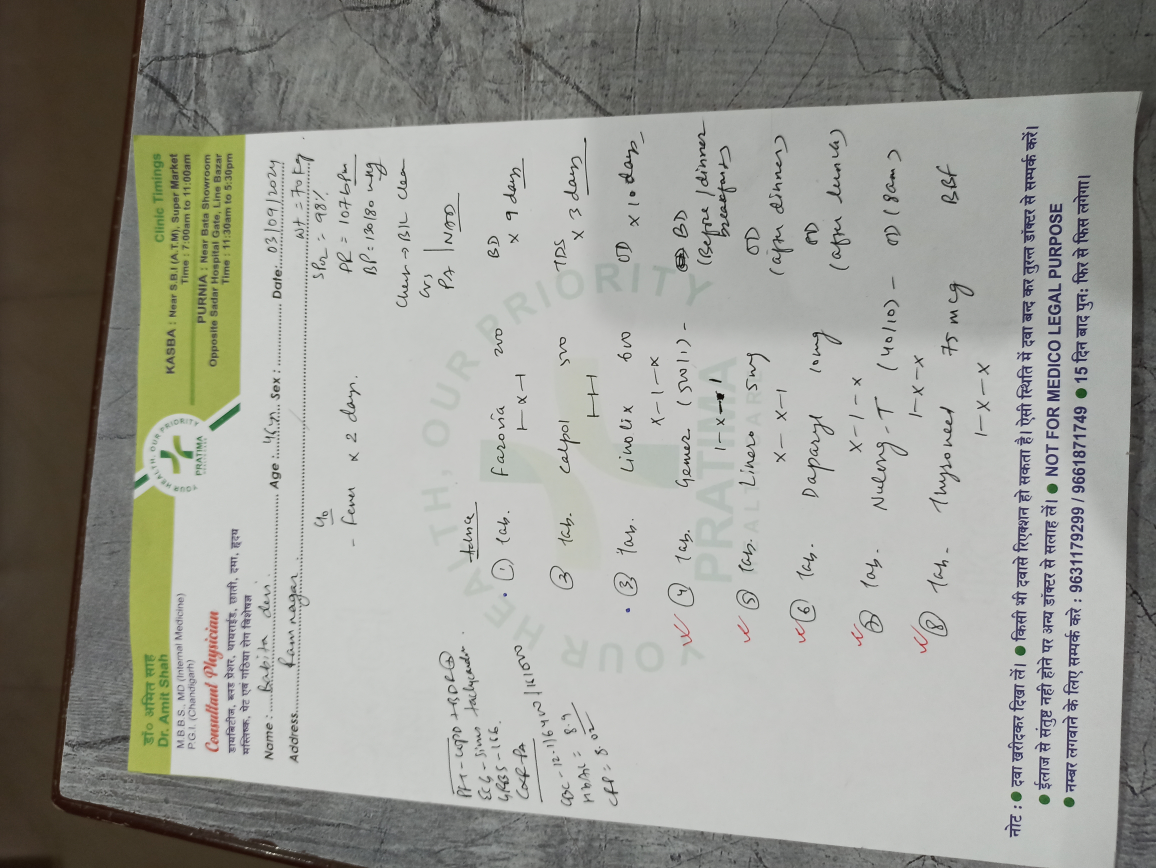 डॉ० अमित साह
Dr. Amit Shah
M.B.B.S., MD (Internal Medicine)
P.G.I. (Chandigarh)
Consultant Physician
डायबिटीज, ब्लड प्रेशर, थायराईड, छाती, दमा, हृदय
मस्तिष्क, पेट एवं गठिया रोग विशेषज्ञ
YOUR HEALTH, OUR PRIORITY
PRATIMA
Clinic Timings
KASBA : Near S.B.I (A.T.M), Super Market
Time : 7:00am to 11:00am
PURNIA : Near Bata Showroom
Opposite Sadar Hospital Gate, Line Bazar
Time : 11:30am to 5:30pm
Name : Babita devi. Age : Sex : Date: 03/09/2024
Address Ram nagar
wt = 70 kg.
SPO2 = 98%
PR = 107 bpm
BP: 120/80 mmHg
Chest → B/L Clear
CVS
PA | NAD
c/o
- Fever x 2 days.
PFT - COPD + BDR
ECG - Sinus tachycardia
GRBS - 116
CBC - 12.1/6400/161000
HbA1C = 8.9
CRP = 5.02
Advice
① Tab. Farovia 200 BD
1-x-1 x 9 days
② Tab. Calpol 500 TDS
1-1-1 x 3 days
③ Tab. Linolix 600 OD x 10 days
x-1-x
④ Tab. Gamer (500/1) - BD
1-x-1 (Before dinner / breakfast)
⑤ Tab. Linero 5mg OD
x-x-1 (after dinner)
⑥ Tab. Daparyl 10mg OD
x-1-x (after lunch)
⑦ Tab. Nuleng-T (40/10) - OD (8am)
1-x-x
⑧ Tab. Thysoneed 75 mcg BBF
1-x-x
YOUR HEALTH, OUR PRIORITY
PRATIMA
HEALTHCARE
नोट : ● दवा खरीदकर दिखा लें। ● किसी भी दवासे रिएक्शन हो सकता है। ऐसी स्थिति में दवा बन्द कर तुरन्त डॉक्टर से सम्पर्क करें।
● ईलाज से संतुष्ट नही होने पर अन्य डॉक्टर से सलाह लें। ● NOT FOR MEDICO LEGAL PURPOSE
● नम्बर लगवाने के लिए सम्पर्क करे : 9631179299 / 9661871749 ● 15 दिन बाद पुनः फिर से फिस लगेगा।